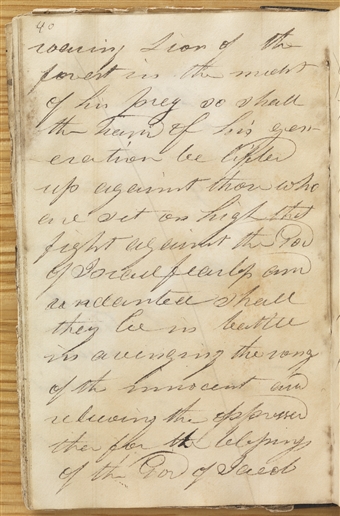 40
roaring Lion of the
forest in the midst
of his prey so shall
the hand of his gen-
eration be lifted
up against those who
are set on high that
fight against the God
of Israel fearless and
undanted shall
they be in battle
in avenging the rong
of the innocent and
relieving the oppressed
ther for the blessings
of the God of Jacob